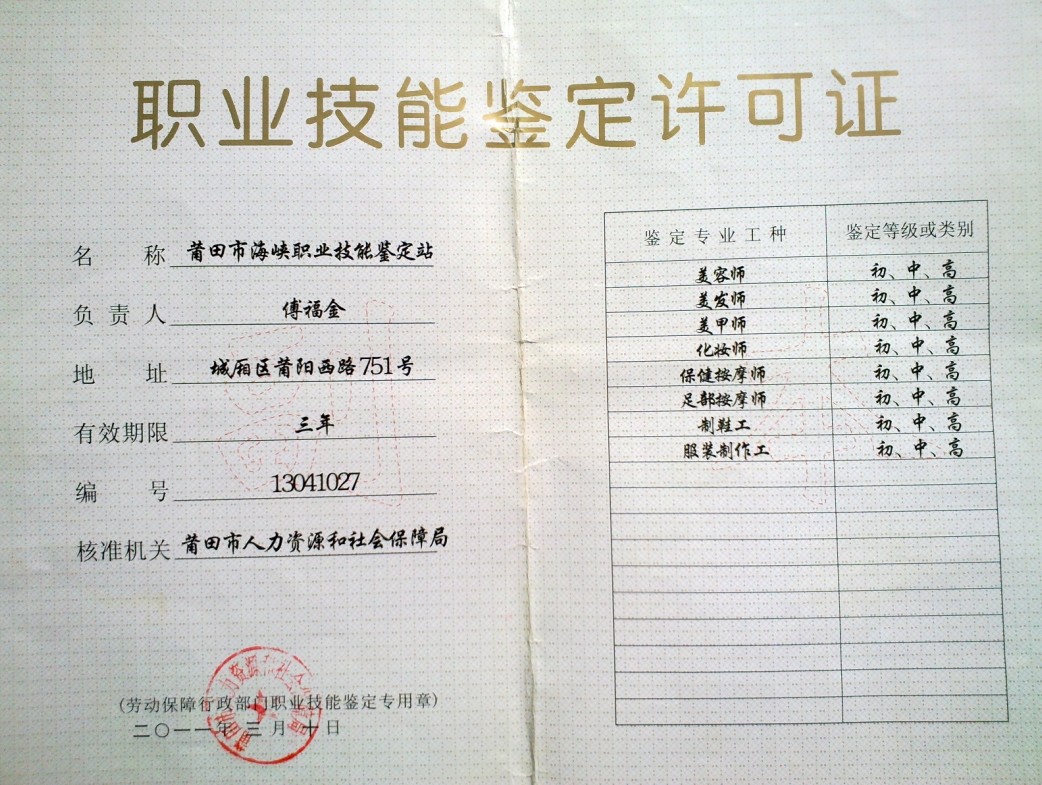 职业技能鉴定许可证
名称 莆田市海峡职业技能鉴定站
负责人 傅福金
地址 城厢区莆阳西路751号
有效期限 三年
编号 13041027
核准机关 莆田市人力资源和社会保障局
(劳动保障行政部门职业技能鉴定专用章)
二〇一一年三月十日
鉴定专业工种 鉴定等级或类别
美容师 初、中、高
美发师 初、中、高
美甲师 初、中、高
化妆师 初、中、高
保健按摩师 初、中、高
足部按摩师 初、中、高
制鞋工 初、中、高
服装制作工 初、中、高